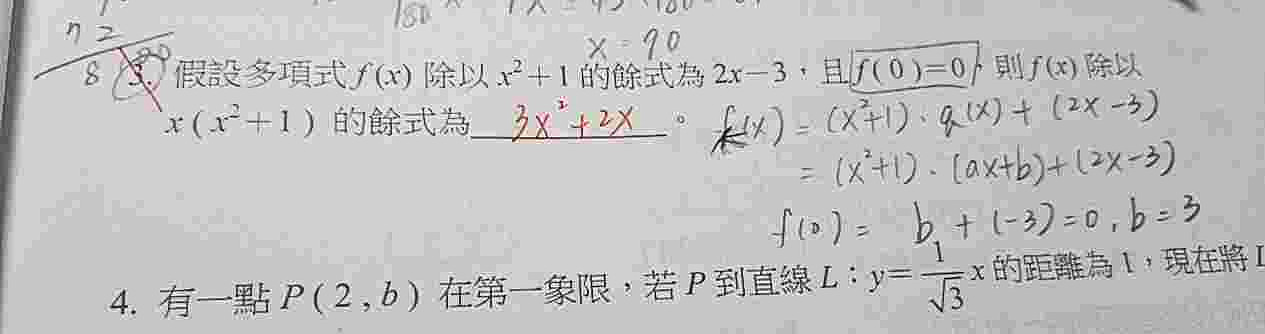 180
x = 90
72
8
3. 假設多項式 f(x) 除以 x²+1 的餘式為 2x−3，且 f(0)=0，則 f(x) 除以
x(x²+1) 的餘式為 3x²+2x 。
f(x) = (x²+1)·q(x)+(2x−3)
= (x²+1)·(ax+b)+(2x−3)
f(0) = b+(-3)=0, b=3
4. 有一點 P(2,b) 在第一象限，若 P 到直線 L：y=1/√3 x 的距離為 1，現在將